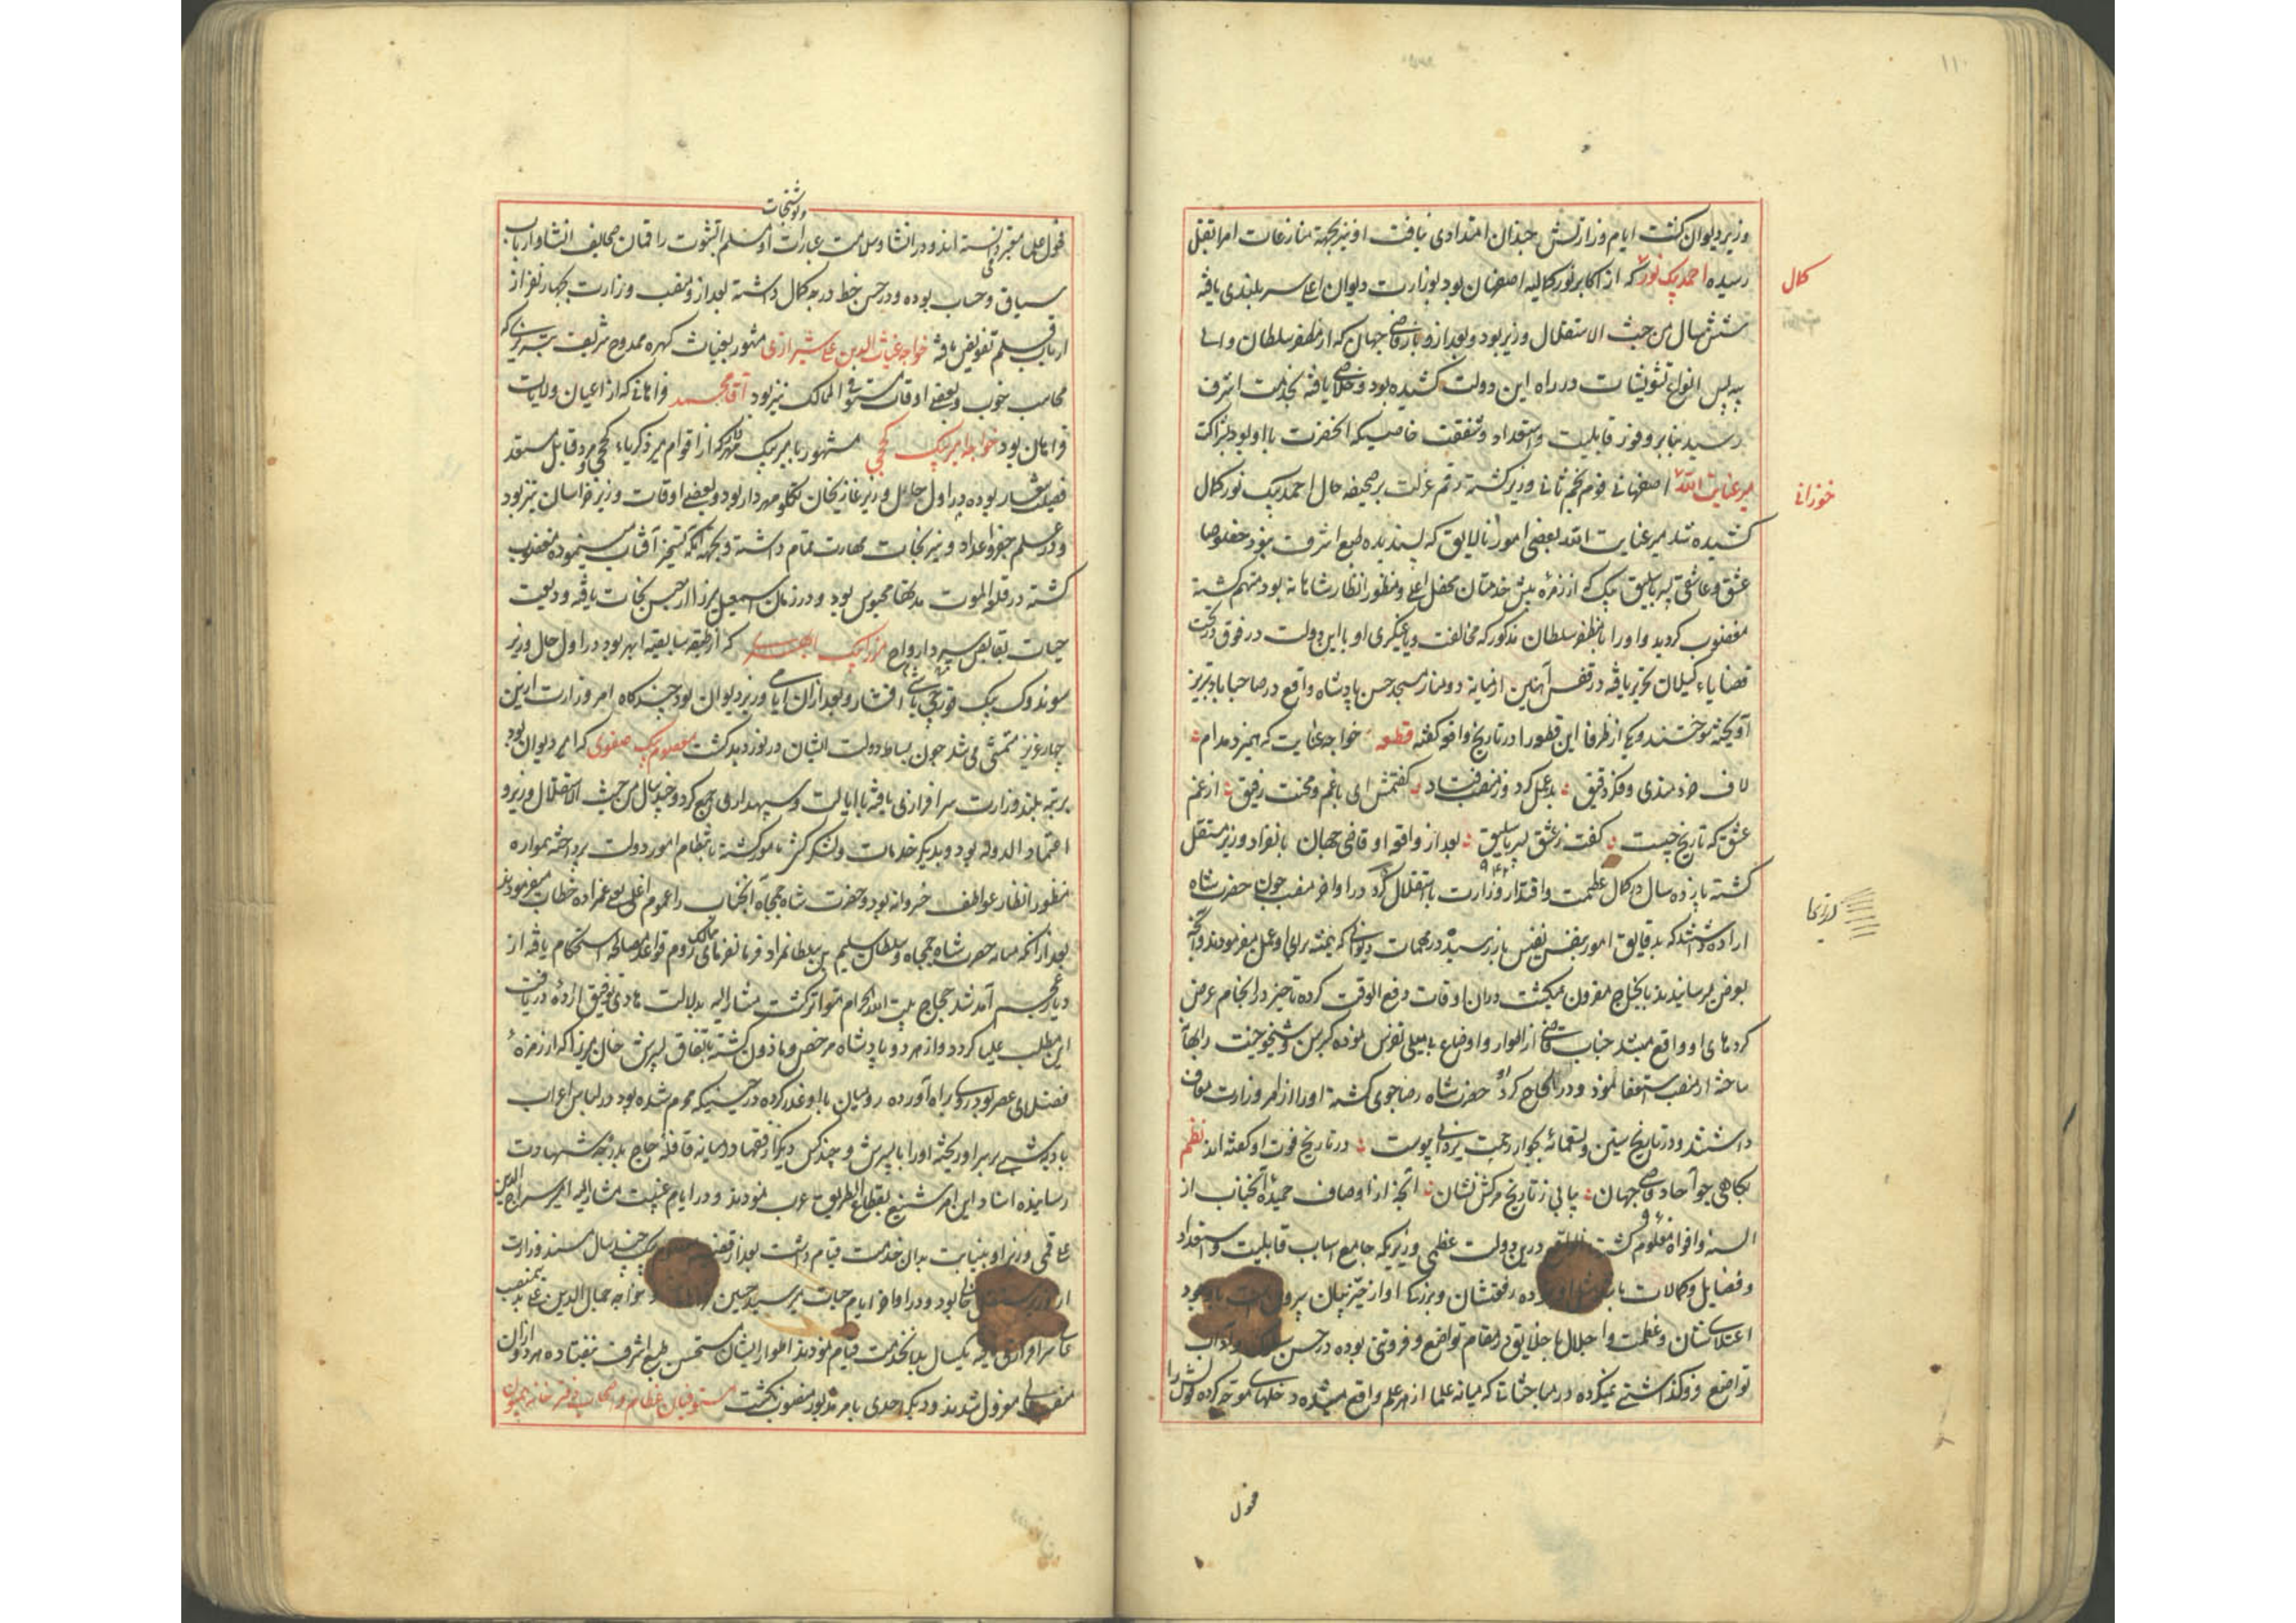 وزیر دیوان گشت ایام وزارتش چندان امتدادی نیافت او نیز بجهة منازعات امرا بقتل
رسیده احمد بیک نور که از اکابر نور کمالیه اصفهان بود بوزارت دیوان اعلی سربلندی یافته
کمال
شش سال من حیث الاستقلال وزیر بود و بعد ازو باز قاضی جهان که از مظفر سلطان والی
بیه پس انواع تشویشات در راه این دولت کشیده بود و خلاصی یافته بخدمت اشرف
رسید بنابر وفور قابلیت و استعداد و شفقت خاصیکه آنحضرت با او بود بشراکت
میر عنایت الله اصفهانی قوم نجم ثانی وزیر گشته رقم عزلت بر صحیفه حال احمد بیک نور کمال
خوزانی
کشیده شد میر عنایت الله بعضی امور نالایق که پسندیده طبع اشرف نبود خصوصا
عشق و عاشقی پسر باسلیق بیک که از زمرهٔ پیش خدمتان محفل اعلی و منظور انظار شاهانه بود متهم گشته
مغضوب گردید و او را با مظفر سلطان مذکور که مخالفت و یاغیگری او با این دولت در فوق در تحت
قضایاء گیلان تحریر یافته در قفس آهنین از میانه دو منار مسجد حسن پادشاه واقع در صاحب آباد تبریز
آویخته سوختند و یکی از ظرفا این قطعه را در تاریخ واقعه گفته قطعه خواجه عنایت که همیزد مدام
لاف خردمندی و فکر دقیق بد عمل کرد و ز منصب فتاد گفتمش ای با غم و محنت رفیق از غم
عشق که تاریخ چیست گفت ز عشق پسر باسلیق بعد از واقعه او قاضی جهان بانفراد وزیر مستقل
۹۴۲
گشته پانزده سال در کمال عظمت و اقتدار وزارت باستقلال کرد در اواخر منصب چون حضرت شاه
اراده داشتند که بدقایق امور بنفس نفیس باز رسیده در مهمات دیوانی که همیشه برای او عمل میفرمودند و آنچه
بعرض میرسانیدند بانجاح مقرون میگشت در آن اوقات دفع الوقت کرده تاخیر در انجام عرض
کردهای او واقع میشد جناب قاضی از اطوار و اوضاع بی میلی تفرس نموده کبر سن و شیخوخیت را بهانه
ساخته از منصب استعفا نمود و در آن الحاح کرد حضرت شاه رضاجوی گشته او را از امر وزارت معاف
داشتند و در تاریخ ستین و تسعمائه بجوار رحمت یزدانی پیوست در تاریخ فوت او گفته اند نظم
جهان بیابی ز تاریخ مرگش نشان آنچه از اوصاف حمیدهٔ آنجناب از
السنه و افواه معلوم گشت درین دولت عظمی وزیریکه جامع اسباب قابلیت و استعداد
و فضایل و کمالات
اعتلای شان و عظمت و اجلال با خلایق در مقام تواضع و فروتنی بوده در حسن سلوک و آداب
تواضع فروگذاشتی نمیکرده در مباحثات که میانه علما از هر علم واقع میشده دخلهای موجه کرده قولش را
قول
و توشیحات
قول علی معتبر دانسته اند و در انشا و سلامت عبارات او مسلم الثبوت راقمان صحایف انشا و ارباب
سیاق و حساب بوده و در حسن خط درجه کمال داشته بعد ازو منصب وزارت بچهار نفر از
ارباب قلم تفویض یافته خواجه غیاث الدین علی شیرازی مشهور بغیاث کهره ممدوح شریف تبریزی که
محاسب خوب و بعضی اوقات مستوفی الممالک نیز بود آقا محمد فراهانی که از اعیان ولایت
فراهان بود خواجه امیر بیک کججی مشهور بامیر بیک مهر که از اقوام میر ذکریاء کججی و مرد قابل مستعد
فضیلت شعار بوده در اول حال وزیر غازیخان تکلو مهردار بود و بعضی اوقات وزیر خراسان نیز بود
و در علم جفر و اعداد و نیرنجات مهارت تمام داشته و بجهة آنکه تسخیر آفتاب مینموده مغضوب
گشته در قلعه الموت مدتها محبوس بود و در زمان اسمعیل میرزا از حبس نجات یافته ودیعت
حیات بقابض ارواح سپرد میرزا بیک ابهری که از طبقه سابقیه ابهر بود در اول حال وزیر
سوندوک بیک قورچی باشی افشار و بعد از آن ایامی وزیر دیوان بود چندگاه امر وزارت ازین
چهار عزیز متمشی می شد چون بساط دولت ایشان درنوردیده گشت معصوم بیک صفوی که امیر دیوان بود
برتبه بلند وزارت سرافرازی یافته با ایالت و سپهداری جمع کرد و چند سال من حیث الاستقلال وزیر و
اعتماد الدوله بود و بدیگر خدمات و لشکرکشی مامور گشته بانتظام امور دولت پرداخته همواره
منظور انظار عواطف خسروانه بود و حضرت شاه جمجاه آنجناب را عمواغلی یعنی عمزاده خطاب میفرمودند
بعد از آنکه میانه حضرت شاه جمجاه و سلطان سلیم بن سلطانمراد فرمانفرمای ممالک روم قواعد مصالحه استحکام یافته از
دیار عجم آمد شد حجاج بیت الله الحرام متواتر گشت مشار الیه بدلالت هادی توفیق ارادهٔ دریافت
این مطلب علیا کرده و از هر دو پادشاه مرخص و ماذون گشته باتفاق پسرش خان میرزا که از زمرهٔ
فضلای عصر بود روی براه آورده رومیان با او غدر کرده در حینیکه محرم شده بود در لباس اعراب
بادیه شبی بر سر او ریخته او را با پسرش و چند کس دیگر از رفقا در میانه قافله حاج بدرجه شهادت
رسانیده اسناد این امر شنیع بقطاع الطریق عرب نمودند و در ایام غیبت مشار الیه امیر سراج الدین
علی قمی وزیر او بنیابت بدان خدمت قیام داشت بعد از قضیه معصوم بیک چند سال مسند وزارت
از وزیر مستقل خالی بود و در اواخر ایام حیات میر سید حسین و خواجه جمال الدین علی بمنصب
سرافرازی یافته یکسال بدانخدمت قیام نمودند اطوار ایشان مستحسن طبع اشرف نیفتاده هر دو از آن
منصب معزول شدند و دیگر احدی بامر مذکور منصوب نگشت مستوفیان عظام و اصحاب دفترخانه همیون